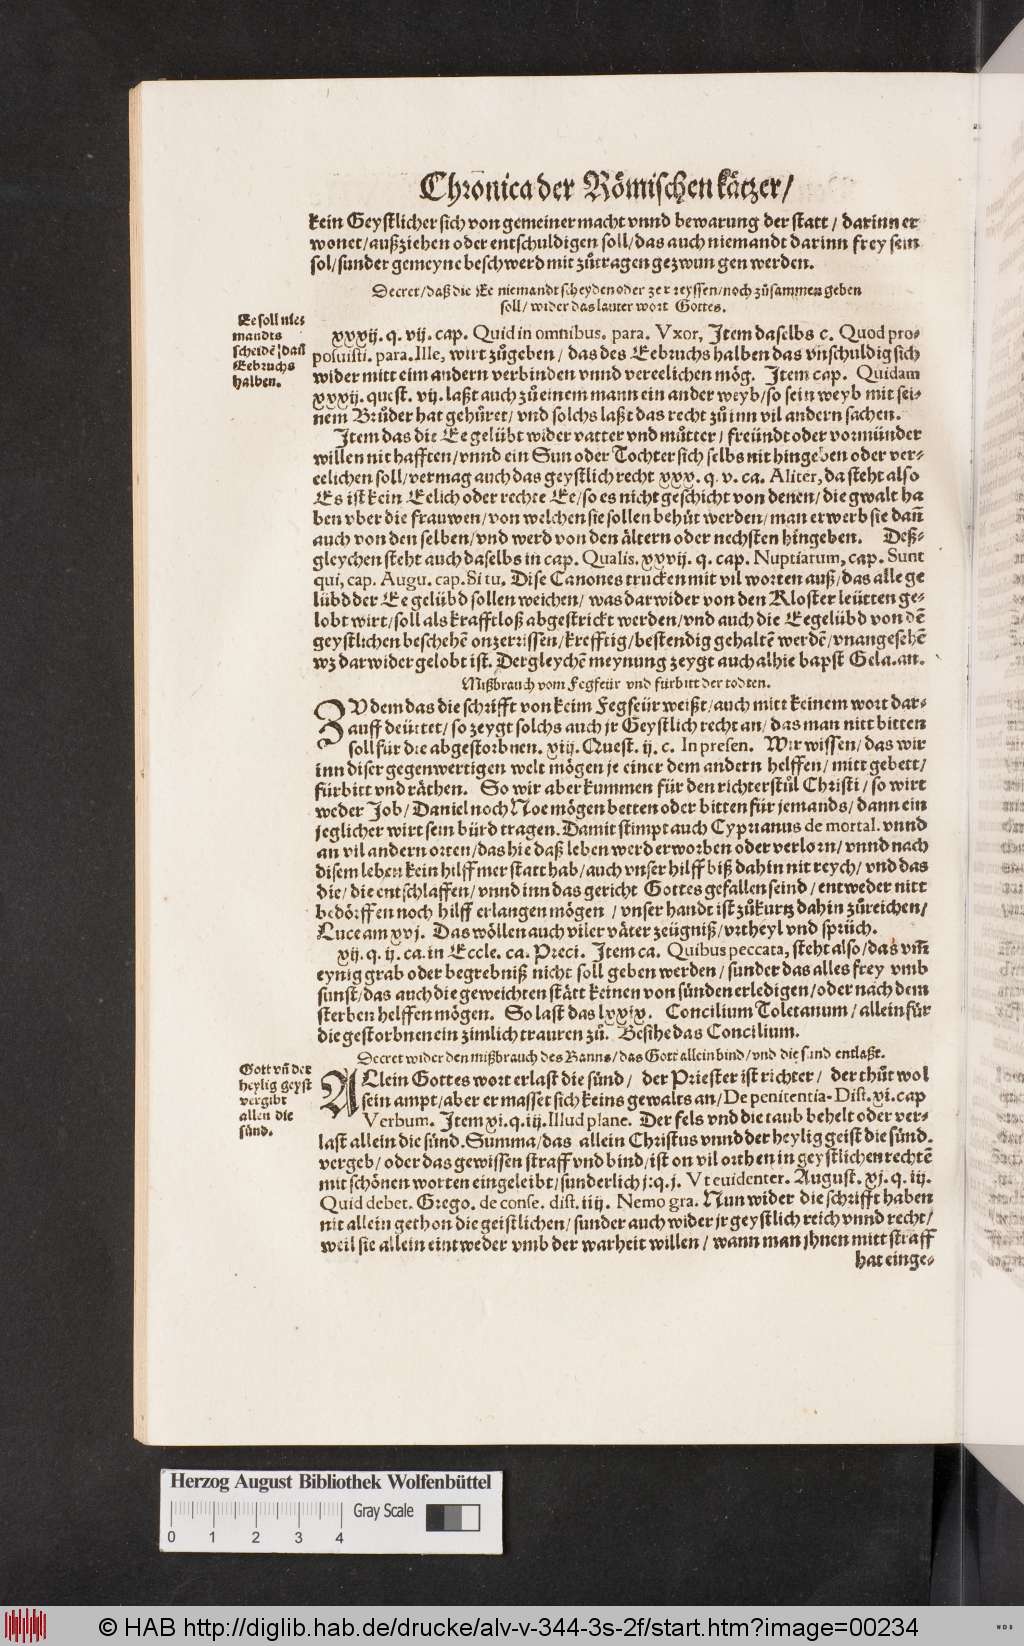 Chronica der Römischen kätzer/
kein Geystlicher sich von gemeiner macht vnnd bewarung der statt / darinn er
wonet/außziehen oder entschuldigen soll/das auch niemandt darinn frey sein
sol/sunder gemeyne beschwerd mit zůtragen gezwungen werden.
Decret/daß die Ee niemandt scheyden oder zerreyssen/noch zůsammen geben
soll/wider das lauter wort Gottes.
Ee soll nie-
mandts
scheidē/dañ
Eebruchs
halben.
xxxij. q. vij. cap. Quid in omnibus. para. Vxor, Item daselbs c. Quod pro-
posuisti. para. Ille, wirt zůgeben / das des Eebruchs halben das vnschuldig sich
wider mitt eim andern verbinden vnnd vereelichen mög. Item cap. Quidam
xxxij. quest. vij. laßt auch zů einem mann ein ander weyb/so sein weyb mit sei-
nem Brůder hat gehůret/ vnd solchs laßt das recht zů inn vil andern sachen.
Item das die Ee gelübt wider vatter vnd můtter / freündt oder vormünder
willen nit hafften/vnnd ein Sun oder Tochter sich selbs nit hingeben oder ver-
eelichen soll/vermag auch das geystlich recht xxx. q. v. ca. Aliter, da steht also
Es ist kein Eelich oder rechte Ee/so es nicht geschicht von denen/ die gwalt ha
ben vber die frauwen/von welchen sie sollen behüt werden/man erwerb sie dañ
auch von den selben/vnd werd von den ältern oder nechsten hingeben. Deß-
gleychen steht auch daselbs in cap. Qualis. xxvij. q. cap. Nuptiarum, cap. Sunt
qui, cap. Augu. cap. Si tu. Dise Canones trucken mit vil worten auß/das alle ge
lübd der Ee gelübd sollen weichen/ was darwider von den Kloster leütten ge-
lobt wirt/soll als krafftloß abgestrickt werden/vnd auch die Eegelübd von dē
geystlichen beschehē onzerrissen/krefftig/bestendig gehaltē werdē/vnangesehē
wz darwider gelobt ist. Dergleychē meynung zeygt auch alhie bapst Gela. an.
Mißbrauch vom Fegfeür vnd fürbitt der todten.
ZV dem das die schrifft von keim Fegfeür weißt/auch mitt keinem wort dar-
auff deüttet/ so zeygt solchs auch jr Geystlich recht an/ das man nitt bitten
soll für die abgestorbnen. xiij. Quest. ij. c. In presen. Wir wissen/ das wir
inn diser gegenwertigen welt mögen je einer dem andern helffen/ mitt gebett/
fürbitt vnd räthen. So wir aber kummen für den richterstůl Christi / so wirt
weder Job/ Daniel noch Noe mögen betten oder bitten für jemands/ dann ein
jeglicher wirt sein bürd tragen. Damit stimpt auch Cyprianus de mortal. vnnd
an vil andern orten/das hie daß leben werd erworben oder verlorn/ vnnd nach
disem leben kein hilff mer statt hab/auch vnser hilff biß dahin nit reych/ vnd das
die/ die entschlaffen/ vnnd inn das gericht Gottes gefallen seind / entweder nitt
bedörffen noch hilff erlangen mögen / vnser handt ist zůkurtz dahin zůreichen/
Luce am xvj. Das wöllen auch viler väter zeügniß/ vrtheyl vnd sprüch.
xij. q. ij. ca. in Eccle. ca. Preci. Item ca. Quibus peccata, steht also/das vm̄
eynig grab oder begrebniß nicht soll geben werden / sunder das alles frey vmb
sunst/das auch die geweichten stätt keinen von sünden erledigen/oder nach dem
sterben helffen mögen. So last das lxxix. Concilium Toletanum / allein für
die gestorbnen ein zimlich trauren zů. Besihe das Concilium.
Decret wider den mißbrauch des Banns/das Gott allein bind/vnd die sünd entlaßt.
Gott vñ der
heylig geyst
vergibt
allen die
sünd.
ALlein Gottes wort erlast die sünd / der Priester ist richter / der thůt wol
sein ampt/aber er masset sich keins gewalts an/De penitentia. Dist. xi. cap
Verbum. Item xi. q. iij. Illud plane. Der fels vnd die taub behelt oder ver-
last allein die sünd. Summa/das allein Christus vnnd der heylig geist die sünd.
vergeb/ oder das gewissen straff vnd bind/ist on vil orthen in geystlichen rechtē
mit schönen worten eingeleibt/sunderlich j: q. j. Vt euidenter. August. xj. q. iij.
Quid debet. Grego. de conse. dist. iiij. Nemo gra. Nun wider die schrifft haben
nit allein gethon die geistlichen/sunder auch wider jr geystlich reich vnnd recht/
weil sie allein eintweder vmb der warheit willen / wann man jhnen mitt straff
hat einge-
Herzog August Bibliothek Wolfenbüttel
Gray Scale
0 1 2 3 4
© HAB http://diglib.hab.de/drucke/alv-v-344-3s-2f/start.htm?image=00234